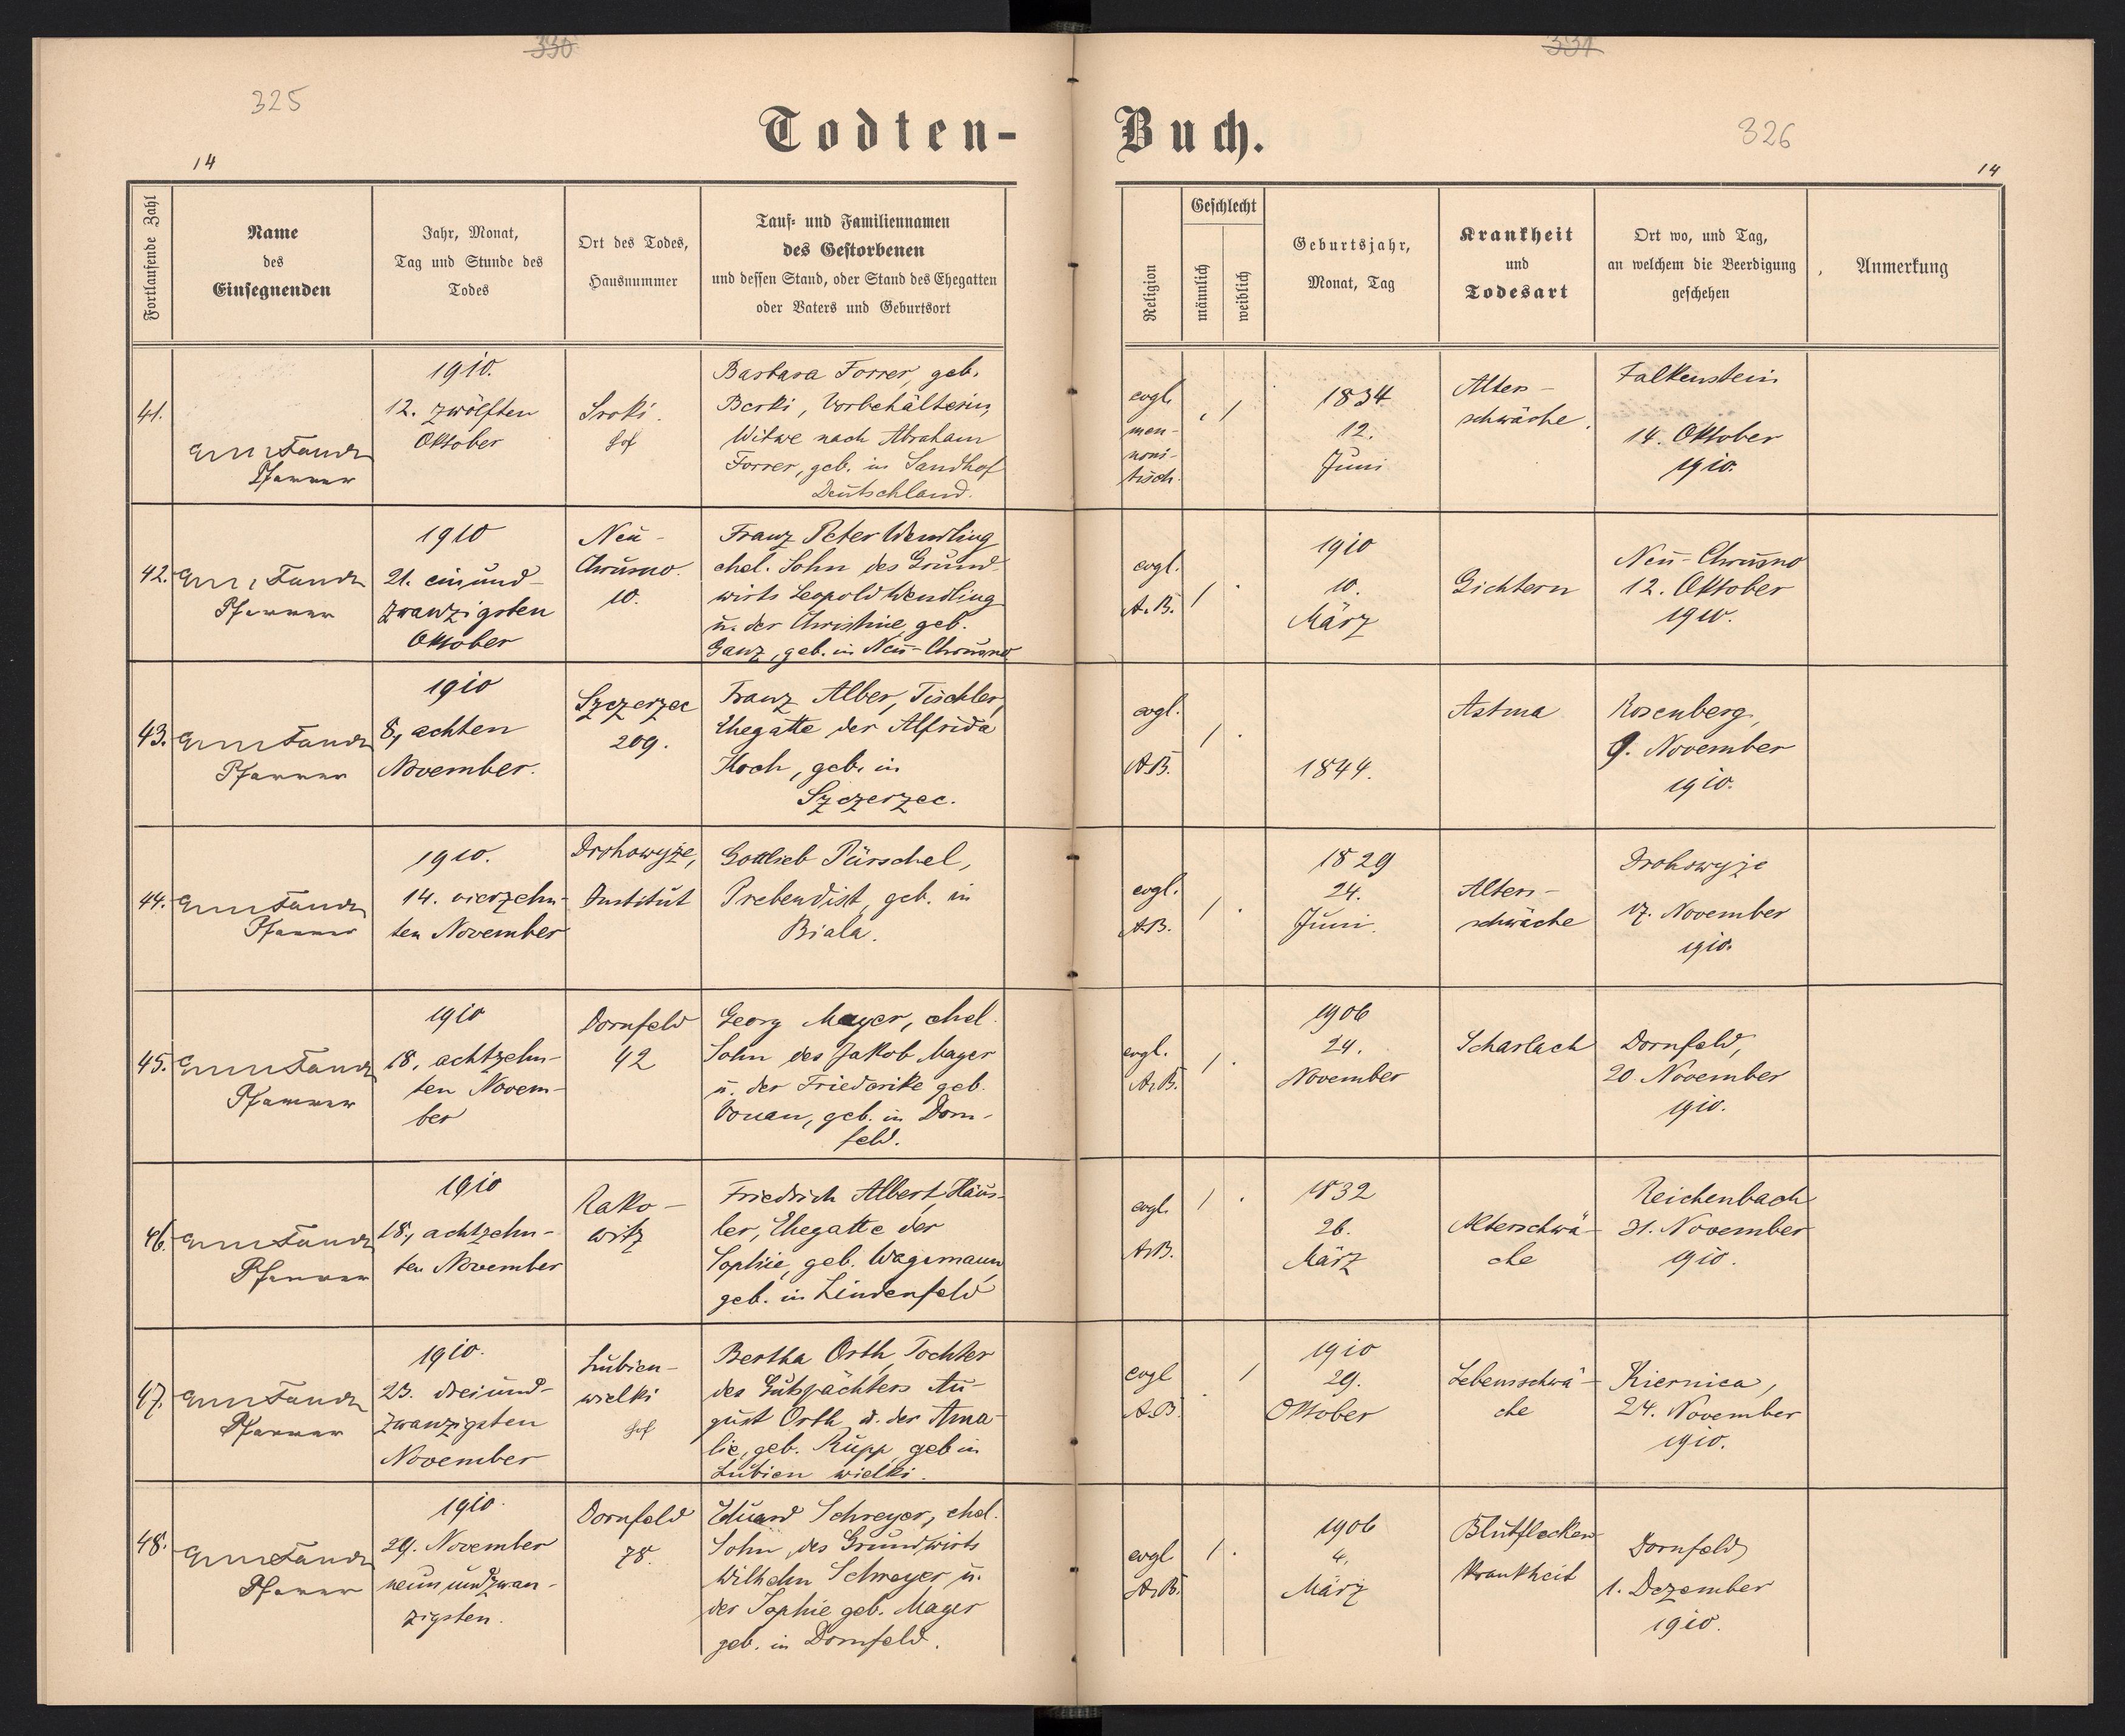 330
331
325
326
Todten-
Buch.
14
14
Fortlaufende Zahl
Name
des
Einsegnenden
Jahr, Monat,
Tag und Stunde des
Todes
Ort des Todes,
Hausnummer
Tauf- und Familiennamen
des Gestorbenen
und dessen Stand, oder Stand des Ehegatten
oder Vaters und Geburtsort
Religion
Geschlecht
männlich
weiblich
Geburtsjahr,
Monat, Tag
Krankheit
und
Todesart
Ort wo, und Tag,
an welchem die Beerdigung
geschehen
Anmerkung
41.
Pfarrer
1910.
12. zwölften
Oktober
Sroki.
Hof
Barbara Forrer, geb.
Berki, Vorbehälterin,
Witwe nach Abraham
Forrer, geb. in Sandhof
Deutschland.
evgl.
men-
noni-
tisch.
1
1834
12.
Juni
Alters-
schwäche.
Falkenstein
14. Oktober
1910.
42.
Pfarrer
1910
21. einund-
zwanzigsten
Oktober
Neu-
Chrusno.
10.
Franz Peter Wendling
ehel. Sohn des Grund-
wirts Leopold Wendling
u. der Christine, geb.
Ganz, geb. in Neu-Chrusno
evgl.
A. B.
1
1910
10.
März
Gichtern
Neu-Chrusno
12. Oktober
1910.
43.
Pfarrer
1910
8, achten
November.
Szczerzec
209.
Franz Alber, Tischler,
Ehegatte der Alfrida
Koch, geb. in
Szczerzec.
evgl.
A.B.
1
1844.
Astma
Rosenberg,
9. November
1910.
44.
Pfarrer
1910.
14. vierzehn-
ten November
Drohowyże,
Institut
Gottlieb Pürschel,
Prebendist, geb. in
Biala.
evgl.
A.B.
1
1829
24.
Juni.
Alters-
schwäche
Drohowyże
17. November
1910.
45.
Pfarrer
1910
18, achtzehn-
ten Novem-
ber
Dornfeld
42
Georg Mayer, ehel.
Sohn des Jakob Mayer
u. der Friederike geb.
Bouan, geb. in Dorn-
feld.
evgl.
A.B.
1
1906
24.
November
Scharlach
Dornfeld,
20. November
1910.
46.
Pfarrer
1910
18, achtzehn-
ten November
Rako-
witz
Friedrich Albert, Häus-
ler, Ehegatte der
Sophie, geb. Wagemann,
geb. in Lindenfeld
evgl.
A.B.
1
1832
26.
März
Alterschwä-
che
Reichenbach
21. November
1910.
47.
Pfarrer
1910.
23. dreiund-
zwanzigsten
November
Lubien-
wielki
Hof
Bertha Orth, Tochter
des Gutspächters Au-
gust Orth u. der Ama-
lie, geb. Rupp, geb in
Lubien wielki.
evgl
A.B.
1
1910
29.
Oktober
Lebensschwä-
che
Kiernica,
24. November
1910.
48.
Pfarrer
1910.
29. November
neunundzwan-
zigsten.
Dornfeld
78.
Eduard Schreyer, ehel.
Sohn des Grundwirts
Wilhelm Schreyer u.
der Sophie geb. Mayer
geb. in Dornfeld.
evgl
A.B.
1
1906
4.
März
Blutflecken-
krankheit
Dornfeld
1. Dezember
1910.